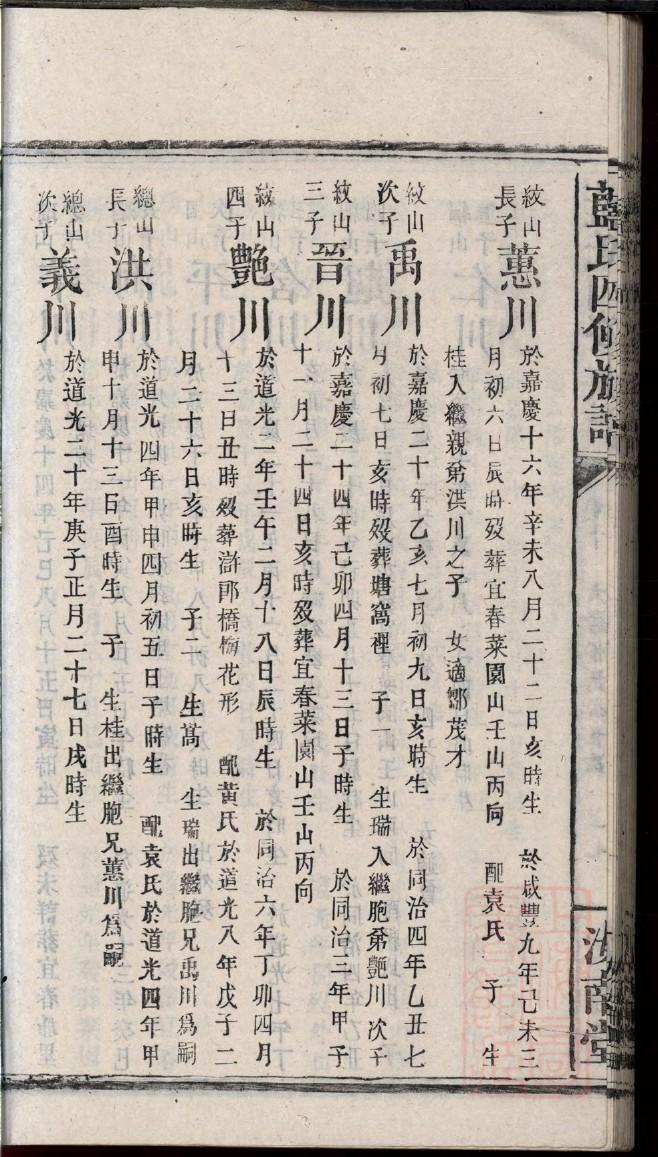 藍氏四修族譜
汝南堂
紋山
長子
蕙川
於嘉慶十六年辛未八月二十二日亥時生 於咸豐九年己未三
月初六日辰時殁葬宜春菜園山壬山丙向 配袁氏 子 生
桂入繼親弟洪川之子 女適鄒茂才
紋山
次子
禹川
於嘉慶二十年乙亥七月初九日亥時生 於同治四年乙丑七
月初七日亥時殁葬塘窩裡 子一 生瑞入繼胞弟艷川次子
紋山
三子
晉川
於嘉慶二十四年己卯四月十三日子時生 於同治三年甲子
十一月二十四日亥時殁葬宜春菜園山壬山丙向
紋山
四子
艷川
於道光二年壬午二月十八日辰時生 於同治六年丁卯四月
十三日丑時殁葬滸郎橋梅花形 配黃氏於道光八年戊子二
月二十六日亥時生 子二 生萵 生瑞出繼胞兄禹川爲嗣
總山
長子
洪川
於道光四年甲申四月初五日子時生 配袁氏於道光四年甲
申十月十三日酉時生 子 生桂出繼胞兄蕙川爲嗣
總山
次子
義川
於道光二十年庚子正月二十七日戌時生